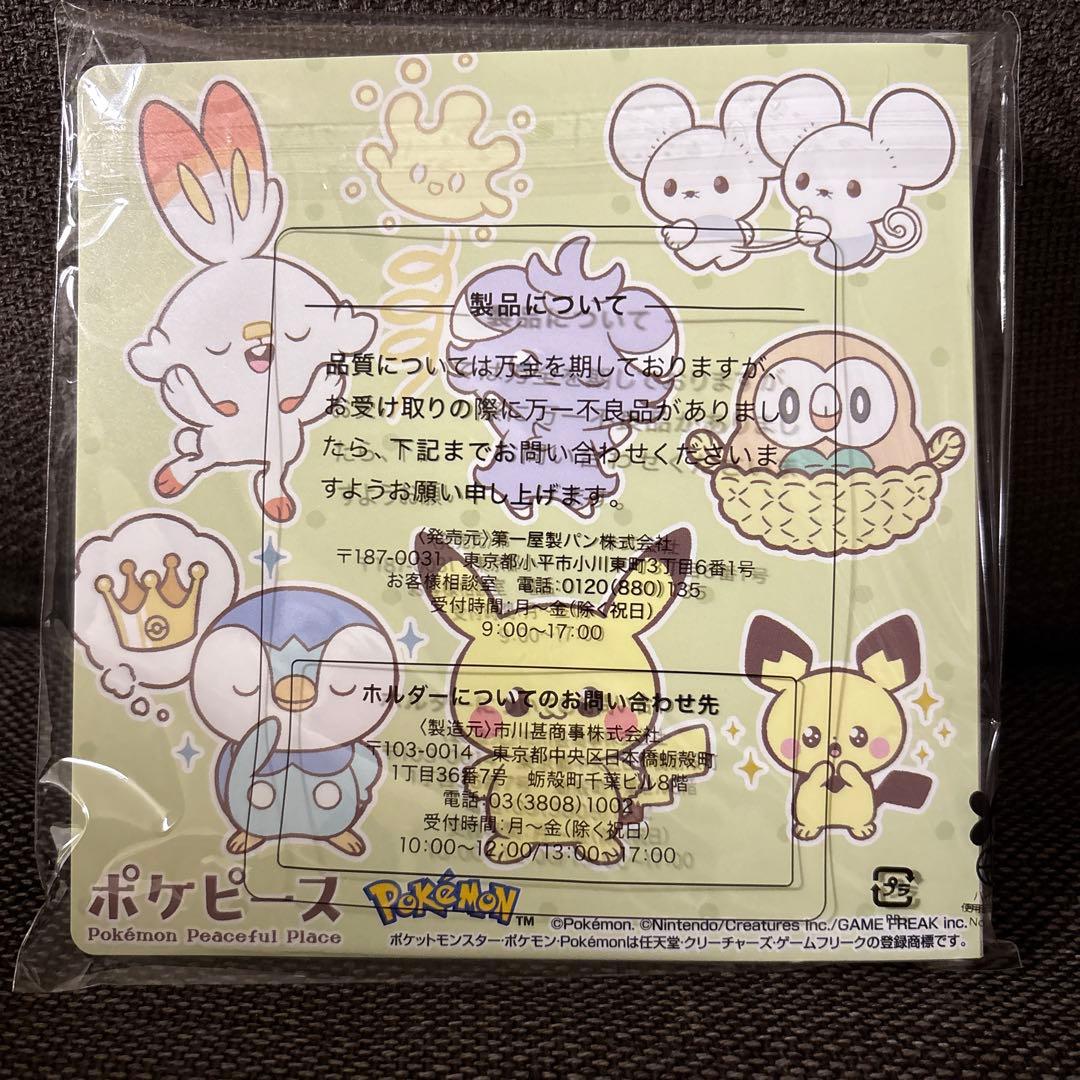 製品について
品質については万全を期しておりますが、
お受け取りの際に万一不良品がありまし
たら、下記までお問い合わせくださいま
すようお願い申し上げます。
〈発売元〉第一屋製パン株式会社
〒187-0031 東京都小平市小川東町3丁目6番1号
お客様相談室 電話:0120(880)135
受付時間:月〜金(除く祝日)
9:00〜17:00
ホルダーについてのお問い合わせ先
〈製造元〉市川甚商事株式会社
〒103-0014 東京都中央区日本橋蛎殻町
1丁目36番7号 蛎殻町千葉ビル8階
電話:03(3808)1002
受付時間:月〜金(除く祝日)
10:00〜12:00/13:00〜17:00
ポケピース
Pokémon Peaceful Place
POKéMON™
プラ
PP
©Pokémon. ©Nintendo/Creatures Inc./GAME FREAK inc.
ポケットモンスター・ポケモン・Pokémonは任天堂・クリーチャーズ・ゲームフリークの登録商標です。